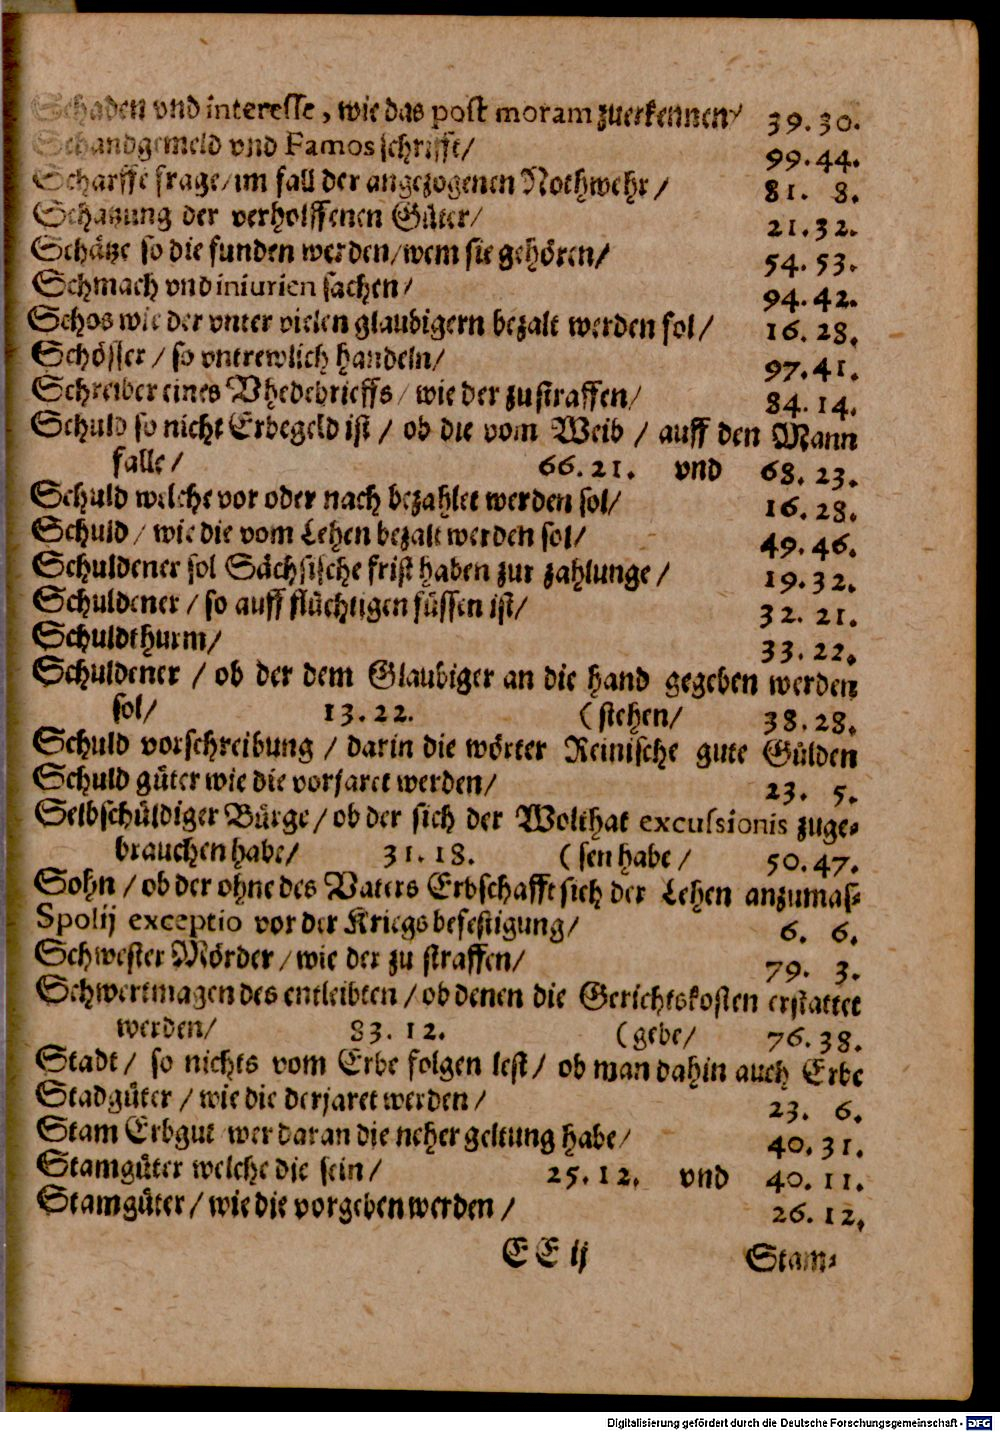 Schaden vnd interesse, wie das post moram zuerkennen/ 39. 30.
Schandgemeld vnd Famosschrifft/ 99. 44.
Scharffe frage/im fall der angezogenen Nothwehr/ 81. 8.
Schatzung der verholffenen Güter/ 21. 32.
Schätze so die funden werden/wem sie gehören/ 54. 53.
Schmach vnd iniurien sachen/ 94. 42.
Schos wie der vnter vielen glaubigern bezalt werden sol/ 16. 28.
Schösser/ so vntrewlich handeln/ 97. 41.
Schreiber eines Vhedebrieffs/ wie der zu straffen/ 84. 14.
Schuld so nicht Erbegeld ist/ ob die vom Weib/ auff den Mann
falle/ 66. 21. vnd 68. 23.
Schuld welche vor oder nach bezahlet werden sol/ 16. 28.
Schuld/ wie die vom Lehen bezalt werden sol/ 49. 46.
Schuldener sol Sächsische frist haben zur zahlunge/ 19. 32.
Schuldener/ so auff flüchtigen füssen ist/ 32. 21.
Schuldthurm/ 33. 22.
Schuldener/ ob der dem Glaubiger an die hand gegeben werden
sol/ 13. 22. (stehen/ 38. 28.
Schuld vorschreibung/ darin die wörter Reinische gute Gülden
Schuld güter wie die vorjaret werden/ 23. 5.
Selbschüldiger Bürge/ ob der sich der Wolthat excussionis zuge-
brauchen habe/ 31. 18. (sen habe/ 50. 47.
Sohn/ ob der ohne des Vaters Erbschafft sich der Lehen anzumas-
Spolij exceptio vor der Kriegsbefestigung/ 6. 6.
Schwester Mörder/ wie der zu straffen/ 79. 3.
Schwertmagen des entleibten/ ob denen die Gerichtskosten erstattet
werden/ 83. 12. (gebe/ 76. 38.
Stadt/ so nichts vom Erbe folgen lest/ ob man dahin auch Erbe
Stadgüter/ wie die derjaret werden/ 23. 6.
Stam Erbgut wer daran die neher geltung habe/ 40. 31.
Stamgüter welche die sein/ 25. 12. vnd 40. 11.
Stamgüter/ wie die vorgeben werden/ 26. 12.
E E ij Stam-
Digitalisierung gefördert durch die Deutsche Forschungsgemeinschaft - DFG